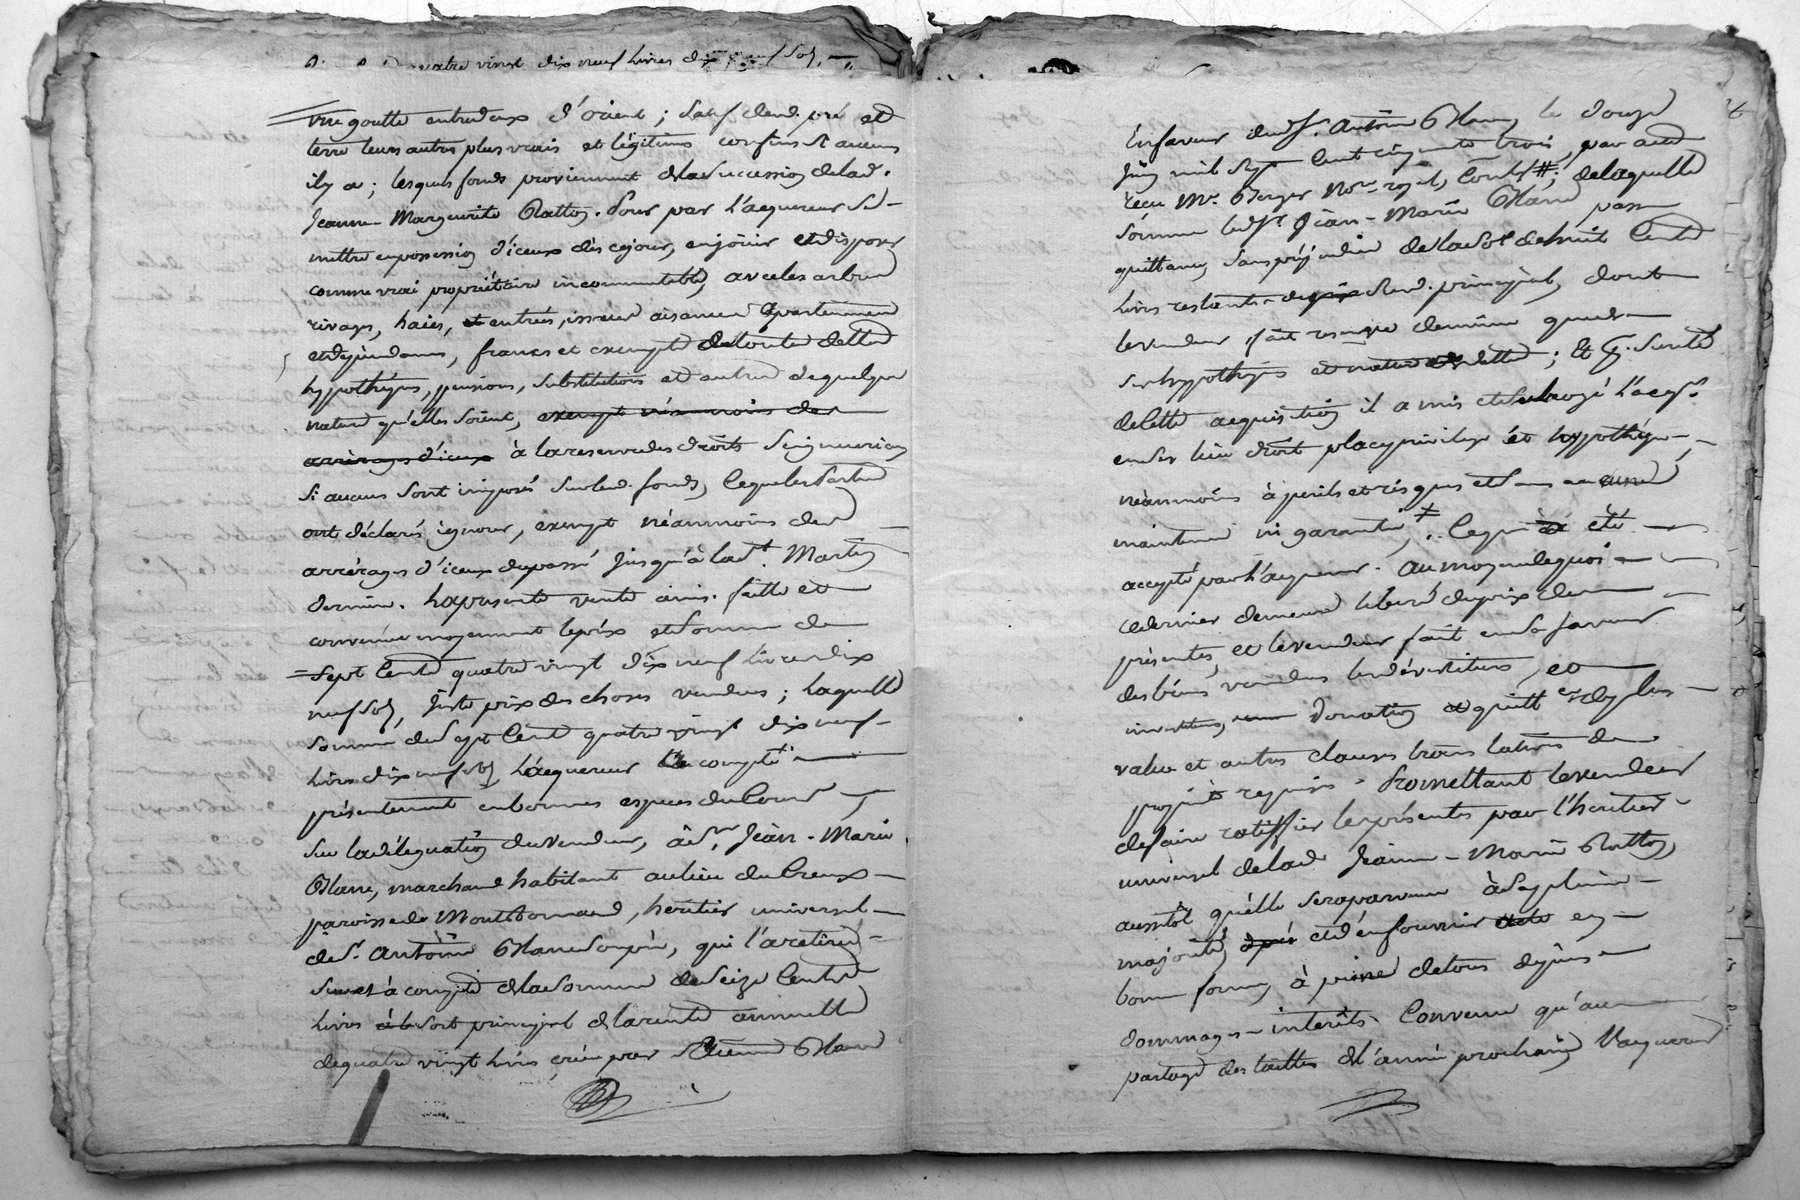 quatre vingt dix neuf livres dix neuf sols
une goutte entredeux d'orient ; sauf dud. pré et
terre leurs autres plus vrais et légitimes confins si aucuns
il y a ; lesquels fonds proviennent de la succession de lad.
Jeanne-Marguerite Ratton. Pour par l'acquereur se
mettre en possession d'iceux dès ce jour, en joüir et disposer
comme vrai propriétaire incommutable, avec les arbres
rivages, haies, et entrées, issues aisances appartenances
et dépendances, francs et exempts de toutes dettes
hypothèques, pensions, substitutions et autres de quelque
nature qu'elles soient, exempt néanmoins des
arrérages d'iceux à la reserve des droits seigneuriaux
si aucuns sont imposés sur led. fonds, lequel les parties
ont déclaré ignorer, exempt néanmoins des
arrérages d'iceux du passé jusqu'à la st. Martin
derniere. La presente vente ainsi faitte et
convenue moyennant le prix et somme de
sept cents quatre vingt dix neuf livres dix
neuf sols, juste prix des choses vendues ; laquelle
somme de sept cents quatre vingt dix neuf
livres dix neuf sols l'acquereur a compté
présentement en bonnes especes du cours
sur la délégation du vendeur, à sr. Jean-Marie
Blanc, marchand habitant au lieu du Creux
paroisse de Montbernard, heritier universel
de sr. Antoine Blanc son père, qui l'a retirée
sur et à compte de la somme de seize cents
livres à le sort principal de la rente annuelle
de quatre vingt livres créée par Etienne Blanc
En faveur dud. sr. Antoine Blanc, le douze
Juin mil sept cent cinquante trois, par acte
reçu Me. Berger Nore. royal, # ; de laquelle
somme led. sr. Jean-Marie Blanc passe
quittance, sans préjudice de la somme de huit cents
livres restante du prix dud. principal, dont
le vendeur fait reserve demême que de
ses hypothèques et nature de dette ; Et pr. sureté
de cette acquisition il a mis et subrogé l'acqr.
en ses lieu droit place privilege et hypothèque
néanmoins à perils et risques et sans aucune
maintenue ni garantie, ≠ . Ce qui a été
accepté par l'acquereur. Au moyen de quoi
ce dernier demeure liberé du prix des
présentes, et le vendeur fait en sa faveur
des biens vendus les dévestitures, et
investitures, donation et quitte de plus
value et autres clauses translatives de
propriété requises. Promettant le vendeur
de faire ratiffier les présentes par l'heritier
universel de lad. Jeanne-Marie Ratton,
aussitôt qu'elle sera parvenue à sa pleine
majorité, après et d'en fournir acte en
bonne forme, à peine de tous dépens
dommages-interêts. Convenu qu'au
partage des tailles de l'année prochaine l'acquereur